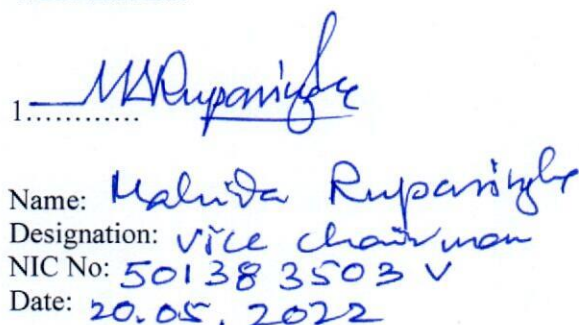 1............ MSRupasinghe
Name: Mahinda Rupasinghe
Designation: Vice chairman
NIC No: 501383503 V
Date: 20.05.2022